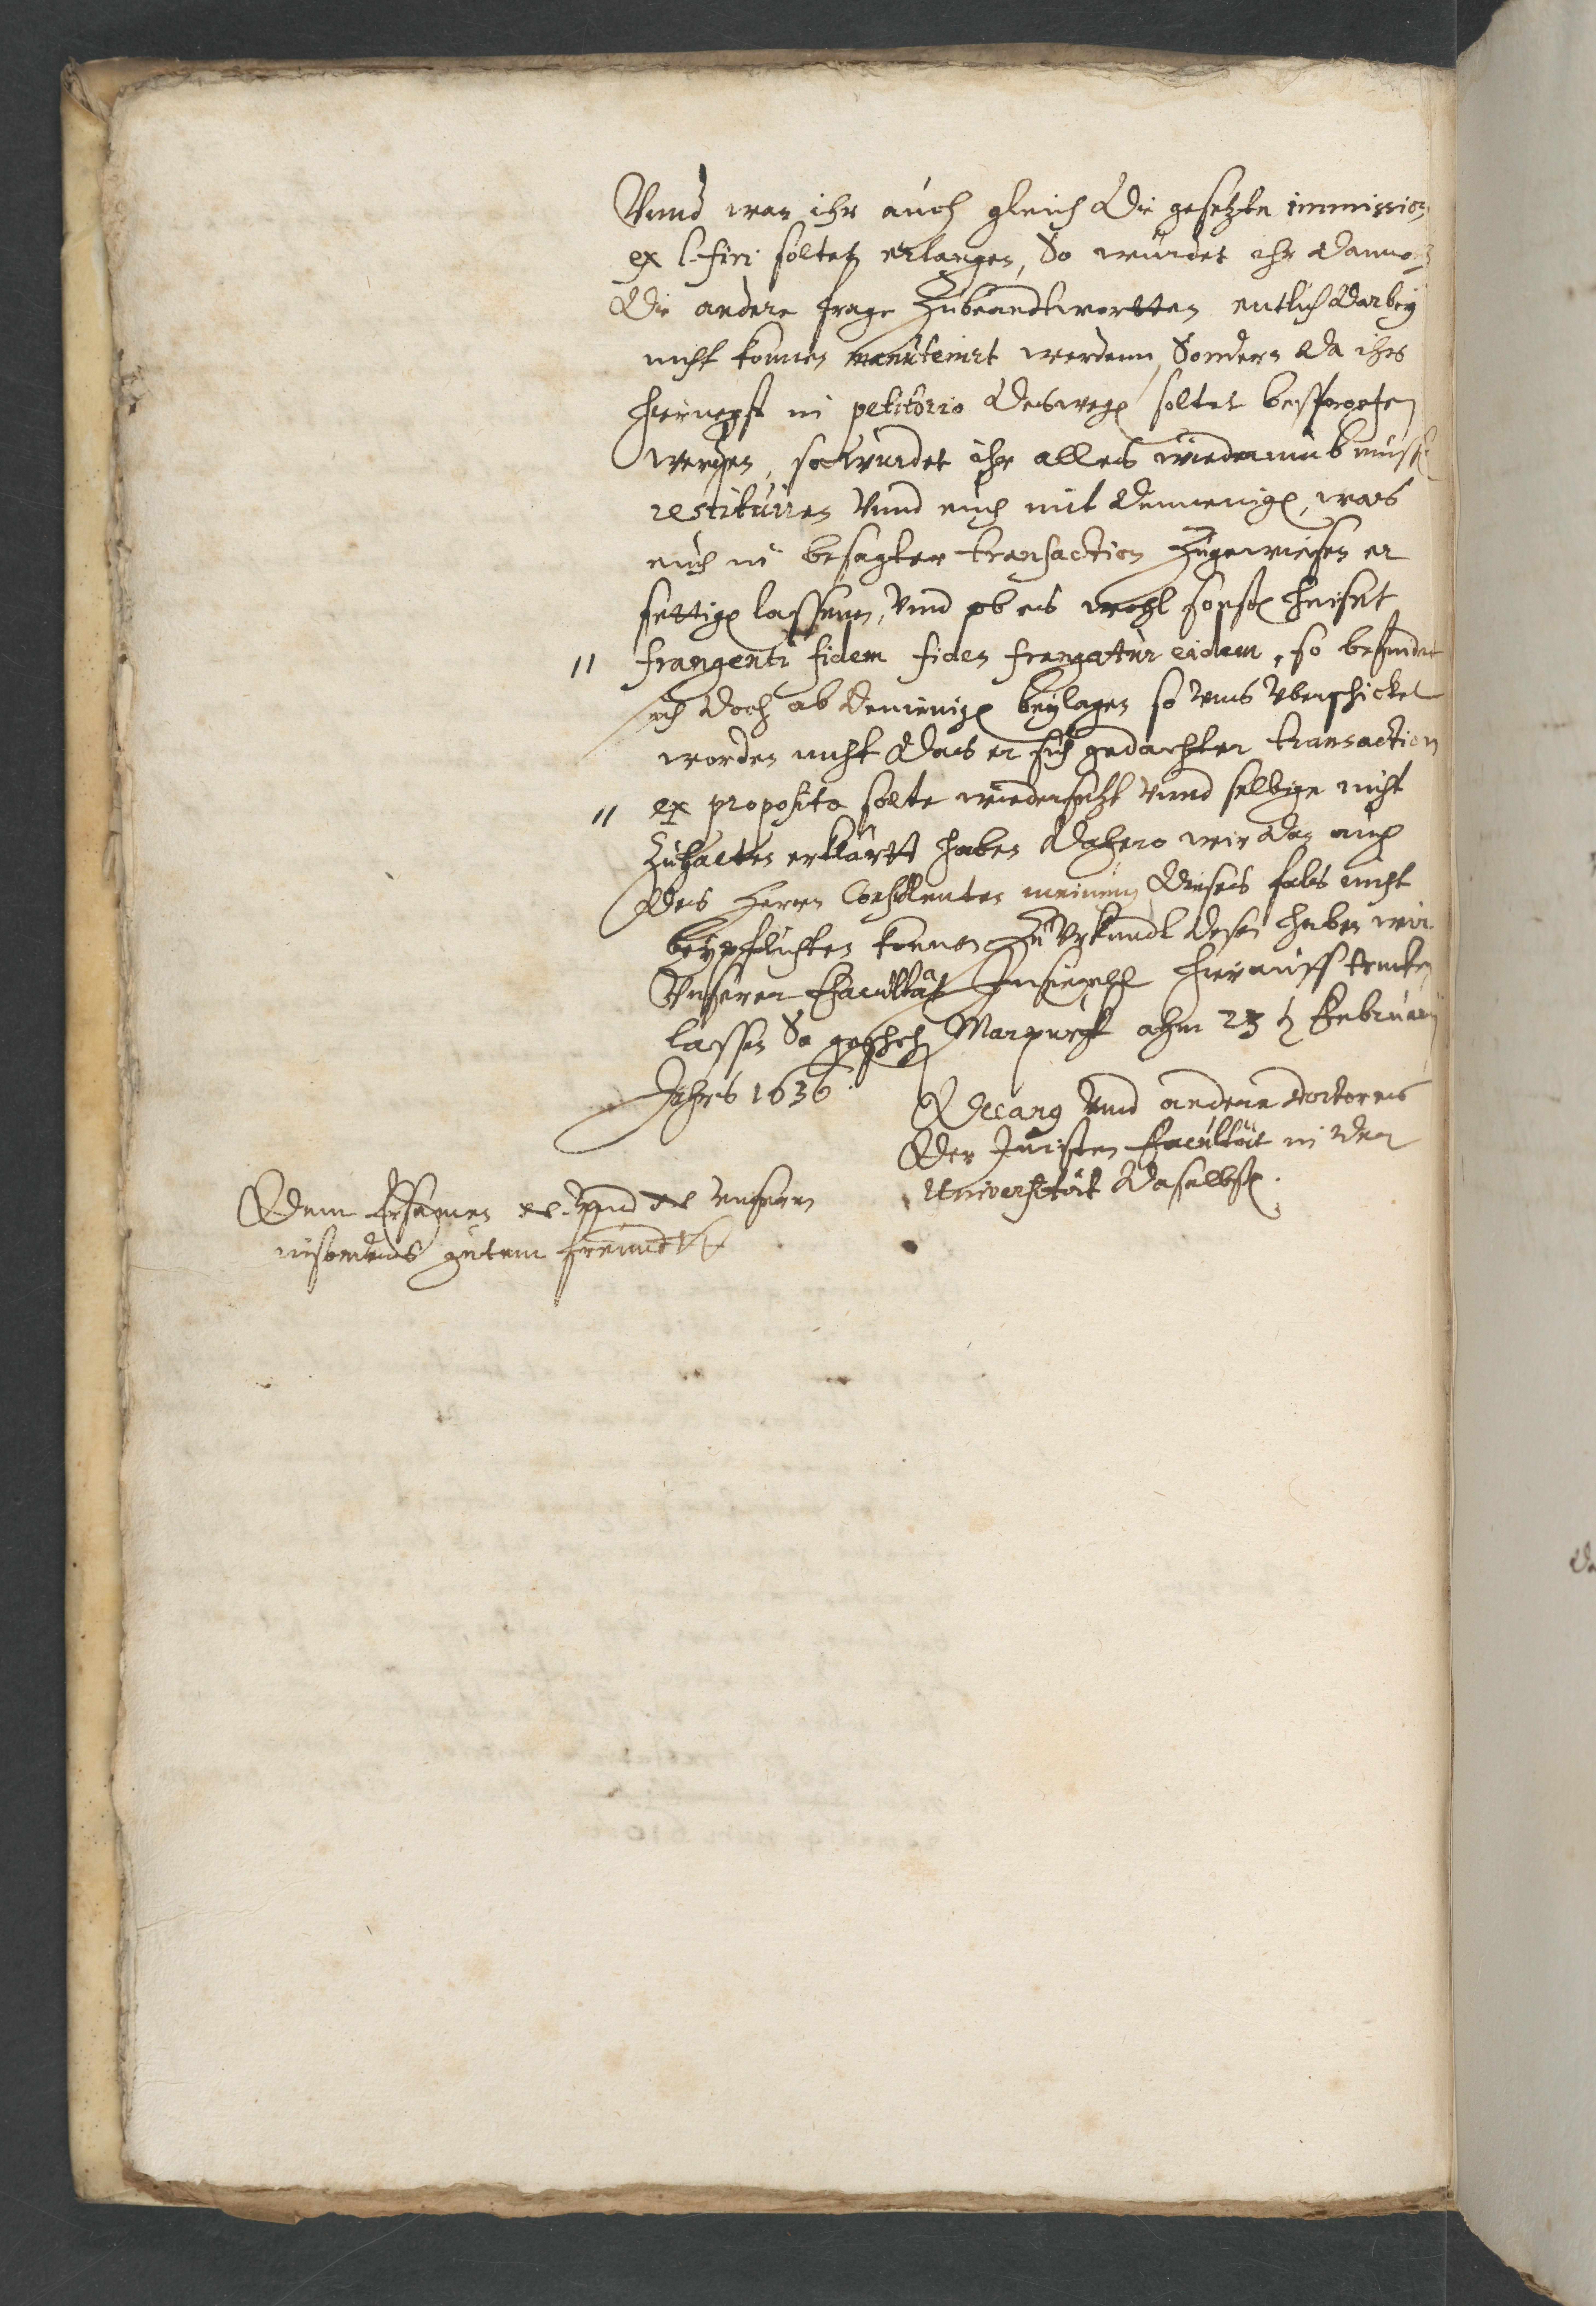 Vnnd wan ihr auch gleich die gesetzte immission
ex l. fin: soltet erlangen, So würdet ihr dannoch
die andere frage Zubeandtwortten entlich darbey
nicht konnen manutenirt werdenn, Sondern da ihr
hiernegst in petitorio deswegen soltet besprochen
werden, so würdet ihr alles wiederumb müssen
restituiren Vnnd euch mit demienigen, was
euch in besagter transaction Zugewiesen er
settigen lassenn, Vnnd ob es wohl sonsten heiset
" frangenti fidem fides frangatur eidem, so befindet
sich doch ab demienigen beylagen so vns vberschicket
worden nicht das er sich gedachter transaction
" ex proposito solte wiedersetzt Vnnd selbige nicht
Zuhalten erklärtt haben dahero wir dan auch
des Herrn Consulenten meinung dieses fals nicht
beypflichten konnen Zu Vrkundt desen haben wir
Vnserer Facultät Insiegell hierauff trucken
lassen So geschehen Marpurgk ahm 23 t. Februarij
Jahrs 1636.
Decanus Vnnd andere doctores
Der Juristen Facultät in der
Universität daselbsten.
Dem Ersamen etc. Vnnd etc. Vnserm
insonders gutem freundt